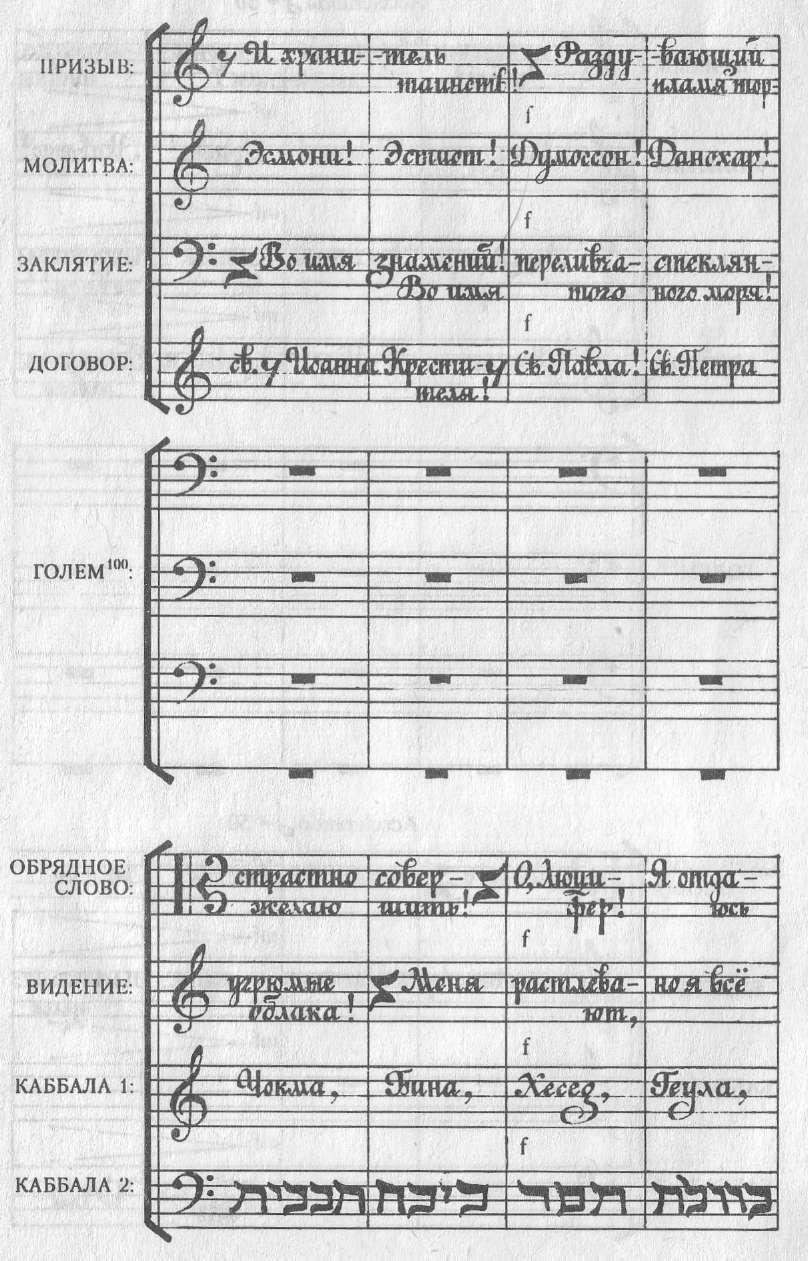 ПРИЗЫВ: И храни- -тель Разду- -вающий
таинств! пламя тор-
f
МОЛИТВА: Эсмони! Эстиот! Думоссон! Данохар!
f
ЗАКЛЯТИЕ: Во имя знамений! переливча- стеклян-
Во имя того ного моря!
f
ДОГОВОР: св. Иоанна Крести- Св. Павла! Св. Петра
теля!
ГОЛЕМ¹⁰⁰:
ОБРЯДНОЕ страстно совер- О, Люци- Я отда-
СЛОВО: желаю шить! фер! юсь
f
ВИДЕНИЕ: угрюмые Меня растлева- но я всё
облака! ют,
f
КАББАЛА 1: Чокма, Бина, Хесед, Геула,
f
КАББАЛА 2: